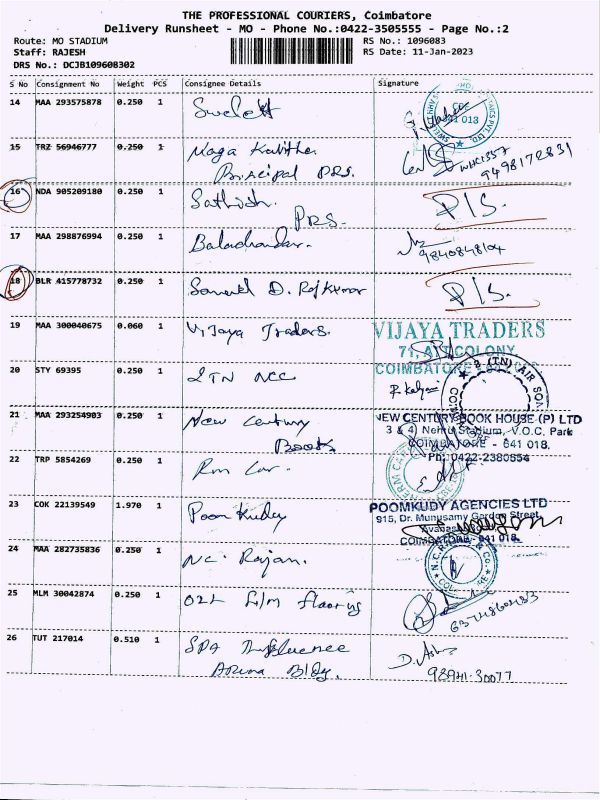 THE PROFESSIONAL COURIERS, Coimbatore
Delivery Runsheet - MO - Phone No.:0422-3505555 - Page No.:2
Route: MO STADIUM
RS No.: 1096083
Staff: RAJESH
RS Date: 11-Jan-2023
DRS No.: DCJB109608302
S No Consignment No Weight PCS Consignee Details Signature
14 MAA 293575878 0.250 1
41 018
15 TRZ 56946777 0.250 1 Naga Kalitha
Principal PRS.
WHC1557
9498172831
16 NDA 905209180 0.250 1 Sathish.
PRS.
P/S.
17 MAA 298876994 0.250 1 Balachandar.
9840848104
18 BLR 415778732 0.250 1 Samuel D. Rajkumar
P/S.
19 MAA 300040675 0.060 1 Vijaya Traders.
VIJAYA TRADERS
71, ATT COLONY
COIMBATORE
20 STY 69395 0.250 1 2TN NCC
(TN) AIR
21 MAA 293254903 0.250 1 New Century
Books
NEW CENTURY BOOK HOUSE (P) LTD
3 & 4 Nehru Stadium, V.O.C. Park
COIMBATORE - 641 018.
Ph: 0422-2380554
22 TRP 5854269 0.250 1
23 COK 22139549 1.970 1 Poon Kudy
POOMKUDY AGENCIES LTD
915, Dr. Munusamy Garden Street,
COIMBATORE - 641 018.
24 MAA 282735836 0.250 1 NC. Rajan.
25 MLM 30042874 0.250 1
26 TUT 217014 0.510 1 SPA Influence
Aruna Bldg.
98941-30077